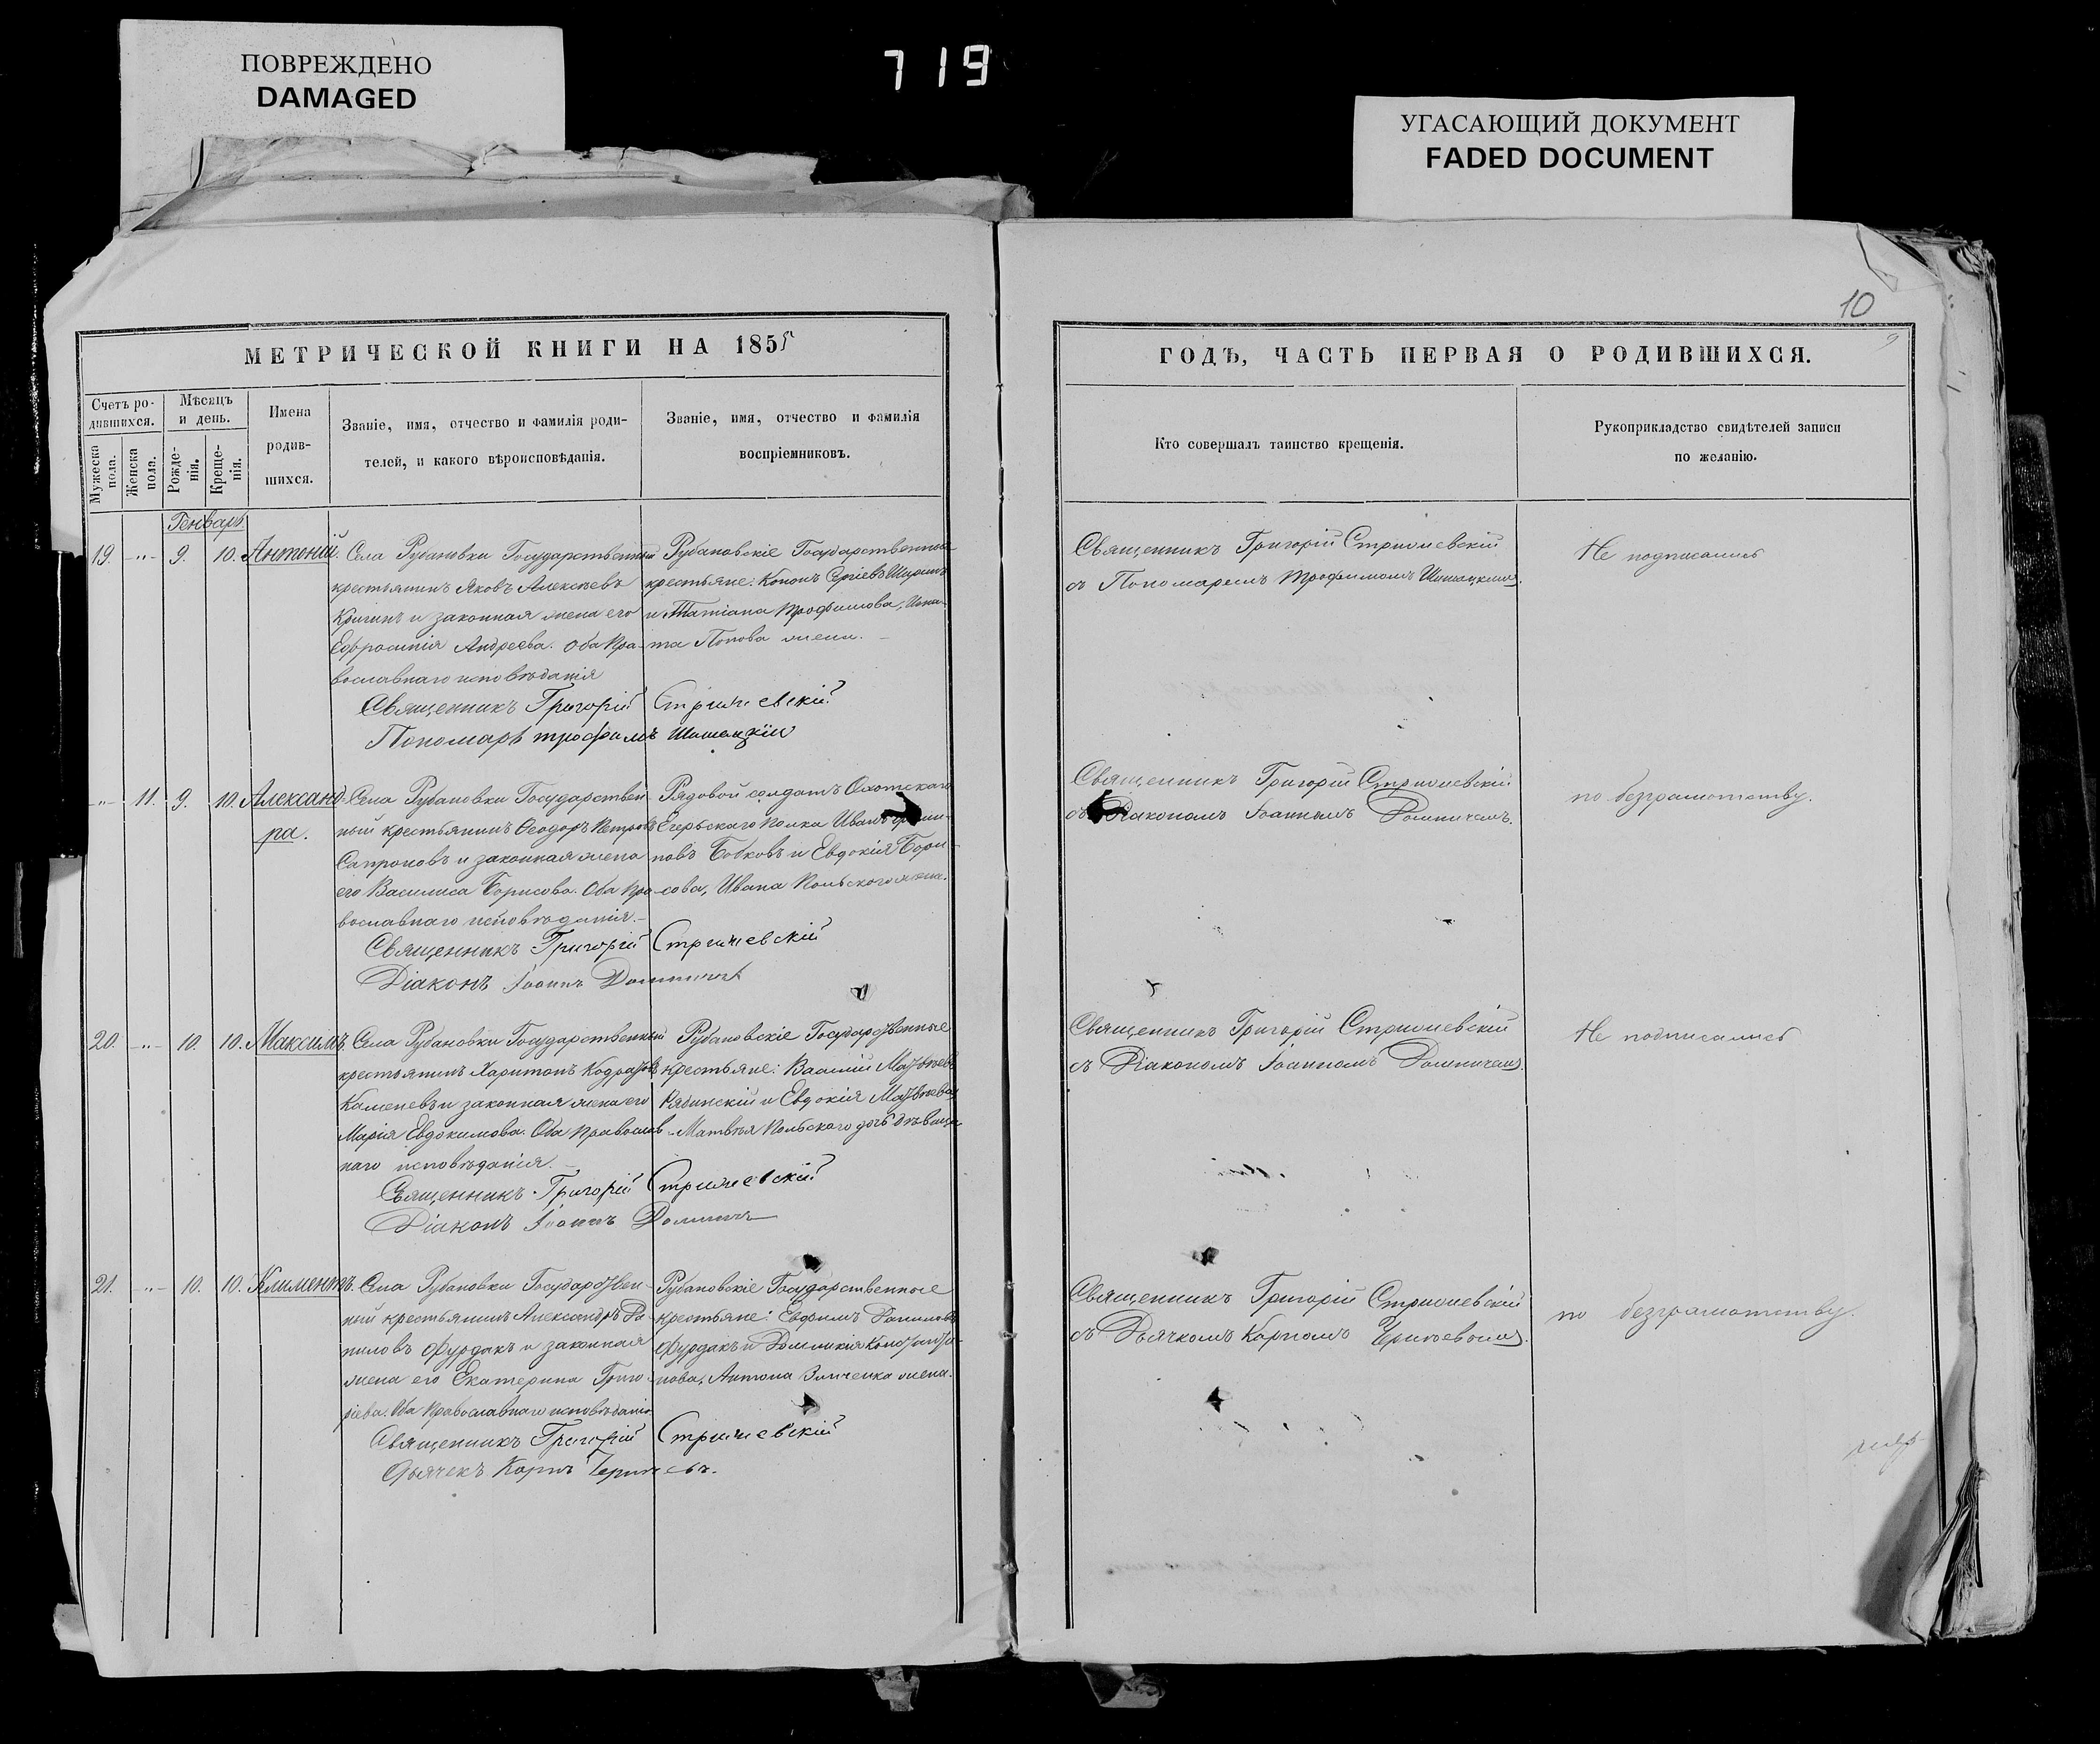 ПОВРЕЖДЕНО
DAMAGED
719
УГАСАЮЩИЙ ДОКУМЕНТ
FADED DOCUMENT
МЕТРИЧЕСКОЙ КНИГИ НА 1855
Счетъ ро-
дившихся.
Мужеска пола.
Женска пола.
Мѣсяцъ
и день.
Рожде-
нія.
Креще-
нія.
Имена
родив-
шихся.
Званіе, имя, отчество и фамилія роди-
телей, и какого вѣроисповѣданія.
Званіе, имя, отчество и фамилія
воспріемниковъ.
Генварь.
19. -"- 9. 10. Антоній.
Села Рубановки Государственный
крестьянинъ Яковъ Алексѣевъ
и законная жена его
Евфросинія Андреева. Оба пра-
вославнаго исповѣданія
Рубановскіе Государственные
крестьяне: Кононъ Сергіевъ
и Татіана Трофимова, Игна-
та Попова жена.
Священникъ Григорій Стрижевскій
Пономарь Трофимъ Шишацкій
-"- 11. 9. 10. Александ-
ра.
Села Рубановки Государствен-
ный крестьянинъ Ѳеодоръ Петровъ
Сапроновъ и законная жена
его Василиса Борисова. Оба пра-
вославнаго исповѣданія.
Рядовой солдатъ Охотскаго
Егерьскаго полка Иванъ
новъ Бобковъ и Евдокія Бори-
сова, Ивана Польскаго жена.
Священникъ Григорій Стрижевскій
Діаконъ Іоаннъ
20. -"- 10. 10. Максимъ.
Села Рубановки Государственный
крестьянинъ Харитонъ Кодратовъ
Каменевъ и законная жена его
Марія Евдокимова. Оба православ-
наго исповѣданія.
Рубановскіе Государственные
крестьяне: Василій Матвѣевъ
Рябинскій и Евдокія Матвѣева
Матвѣя Польскаго дочь дѣвица
Священникъ Григорій Стрижевскій
Діаконъ Іоаннъ
21. -"- 10. 10. Климентъ.
Села Рубановки Государствен-
ный крестьянинъ Александръ Да-
ниловъ Фурдакъ и законная
жена его Екатерина Григо-
рьева. Оба православнаго исповѣданія
Рубановскіе Государственные
крестьяне: Евфимъ Даниловъ
Фурдакъ и Домникія Константи-
нова, Антона Зинченка жена.
Священникъ Григорій Стрижевскій
Дьячекъ Карпъ
10
9
ГОДЪ, ЧАСТЬ ПЕРВАЯ О РОДИВШИХСЯ.
Кто совершалъ таинство крещенія.
Рукоприкладство свидѣтелей записи
по желанію.
Священникъ Григорій Стрижевскій
съ Пономаремъ Трофимомъ Шишацкимъ.
Не подписались
Священникъ Григорій Стрижевскій
съ Діакономъ Іоанномъ
по безграмотству.
Священникъ Григорій Стрижевскій
съ Діакономъ Іоанномъ
Не подписались
Священникъ Григорій Стрижевскій
съ Дьячкомъ Карпомъ
по безграмотству.